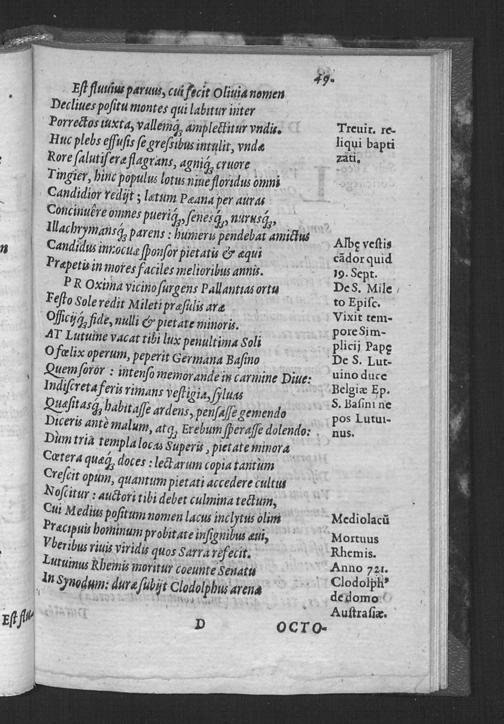 49.
Est fluuius paruus, cui fecit Oliuia nomen
Decliues positu montes qui labitur inter
Porrectos iuxta, vallemq́; amplectitur vndis.
Huc plebs effusis se gressibus intulit, vndæ
Rore salutiferæ flagrans, agniq́; cruore
Tingier, hinc populus lotus niue floridus omni
Candidior redijt; lætum Pæana per auras
Concinuêre omnes pueriq́;, senesq́;, nurusq́;,
Illachrymansq́; parens: humeris pendebat amictus
Candidus innocuæ sponsor pietatis & æqui
Præpetis in mores faciles melioribus annis.
PROxima vicino surgens Pallantias ortu
Festo Sole redit Mileti præsulis aræ
Officijq́; fide, nulli & pietate minoris.
AT Lutuine vacat tibi lux penultima Soli
O fœlix operum, peperit Germana Basino
Quem soror: intenso memorande in carmine Diue:
Indiscreta feris rimans vestigia, syluas
Quæsitasq́; habitasse ardens, pensasse gemendo
Diceris antè malum, atq; Erebum sperasse dolendo:
Dum tria templa locas Superis, pietate minora
Cœtera quæq́; doces: lectarum copia tantùm
Crescit opum, quantum pietati accedere cultus
Noscitur: auctori tibi debet culmina tectum,
Cui Medius positum nomen lacus inclytus olim
Præcipuis hominum probitate insignibus æui,
Vberibus riuis viridis quos Sarra refecit.
Lutuinus Rhemis moritur coeunte Senatu
In Synodum: duræ subijt Clodolphus arenæ
Treuir. re-
liqui bapti
zati.
Albę vestis
cādor quid
19. Sept.
De S. Mile
to Episc.
Vixit tem-
pore Sim-
plicij Papę
De S. Lut-
uino duce
Belgiæ Ep.
S. Basini ne
pos Lutui-
nus.
Mediolacū
Mortuus
Rhemis.
Anno 721.
Clodolph⁹
de domo
Austrasiæ.
D
OCTO-
Est flu